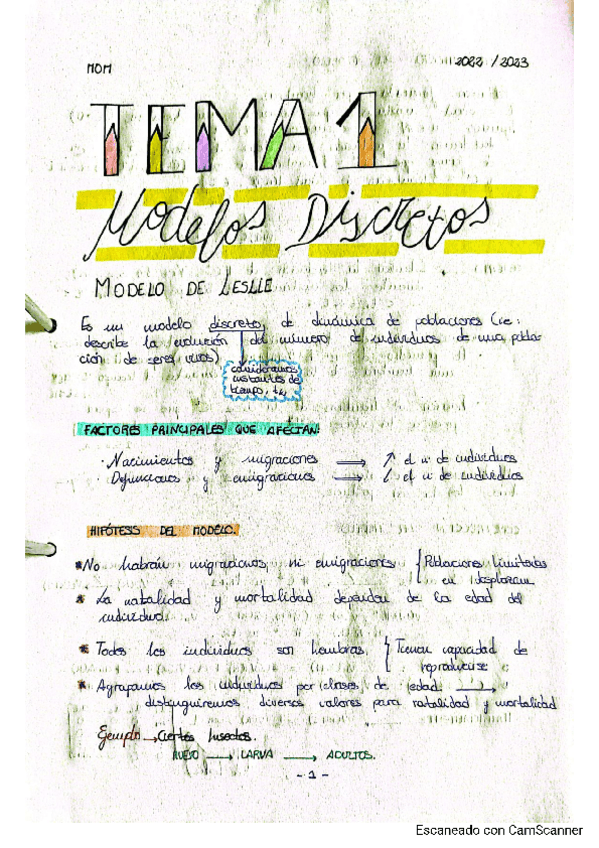 MOM
2022 / 2023
TEMA 1
Modelos Discretos
MODELO DE LESLIE
Es un modelo discreto, de dinámica de poblaciones (ie:
describe la evolución del número de individuos de una pobla-
ción de seres vivos)
consideramos
instantes de
tiempo, tk
FACTORES PRINCIPALES QUE AFECTAN:
· Nacimientos y migraciones ⟹ ↑ el nº de individuos
· Defunciones y emigraciones ⟹ ↓ el nº de individuos
HIPÓTESIS DEL MODELO.
* No habrán migraciones, ni emigraciones { Poblaciones limitadas
en desplazam
* La natalidad y mortalidad dependen de la edad del
individuo.
* Todos los individuos son hembras. { Tienen capacidad de
reproducirse
* Agrupamos los individuos por clases, de edad →
distinguiremos diversos valores para natalidad y mortalidad
Ejemplo → Ciertos Insectos.
HUEVO → LARVA → ADULTOS.
- 1 -
Escaneado con CamScanner